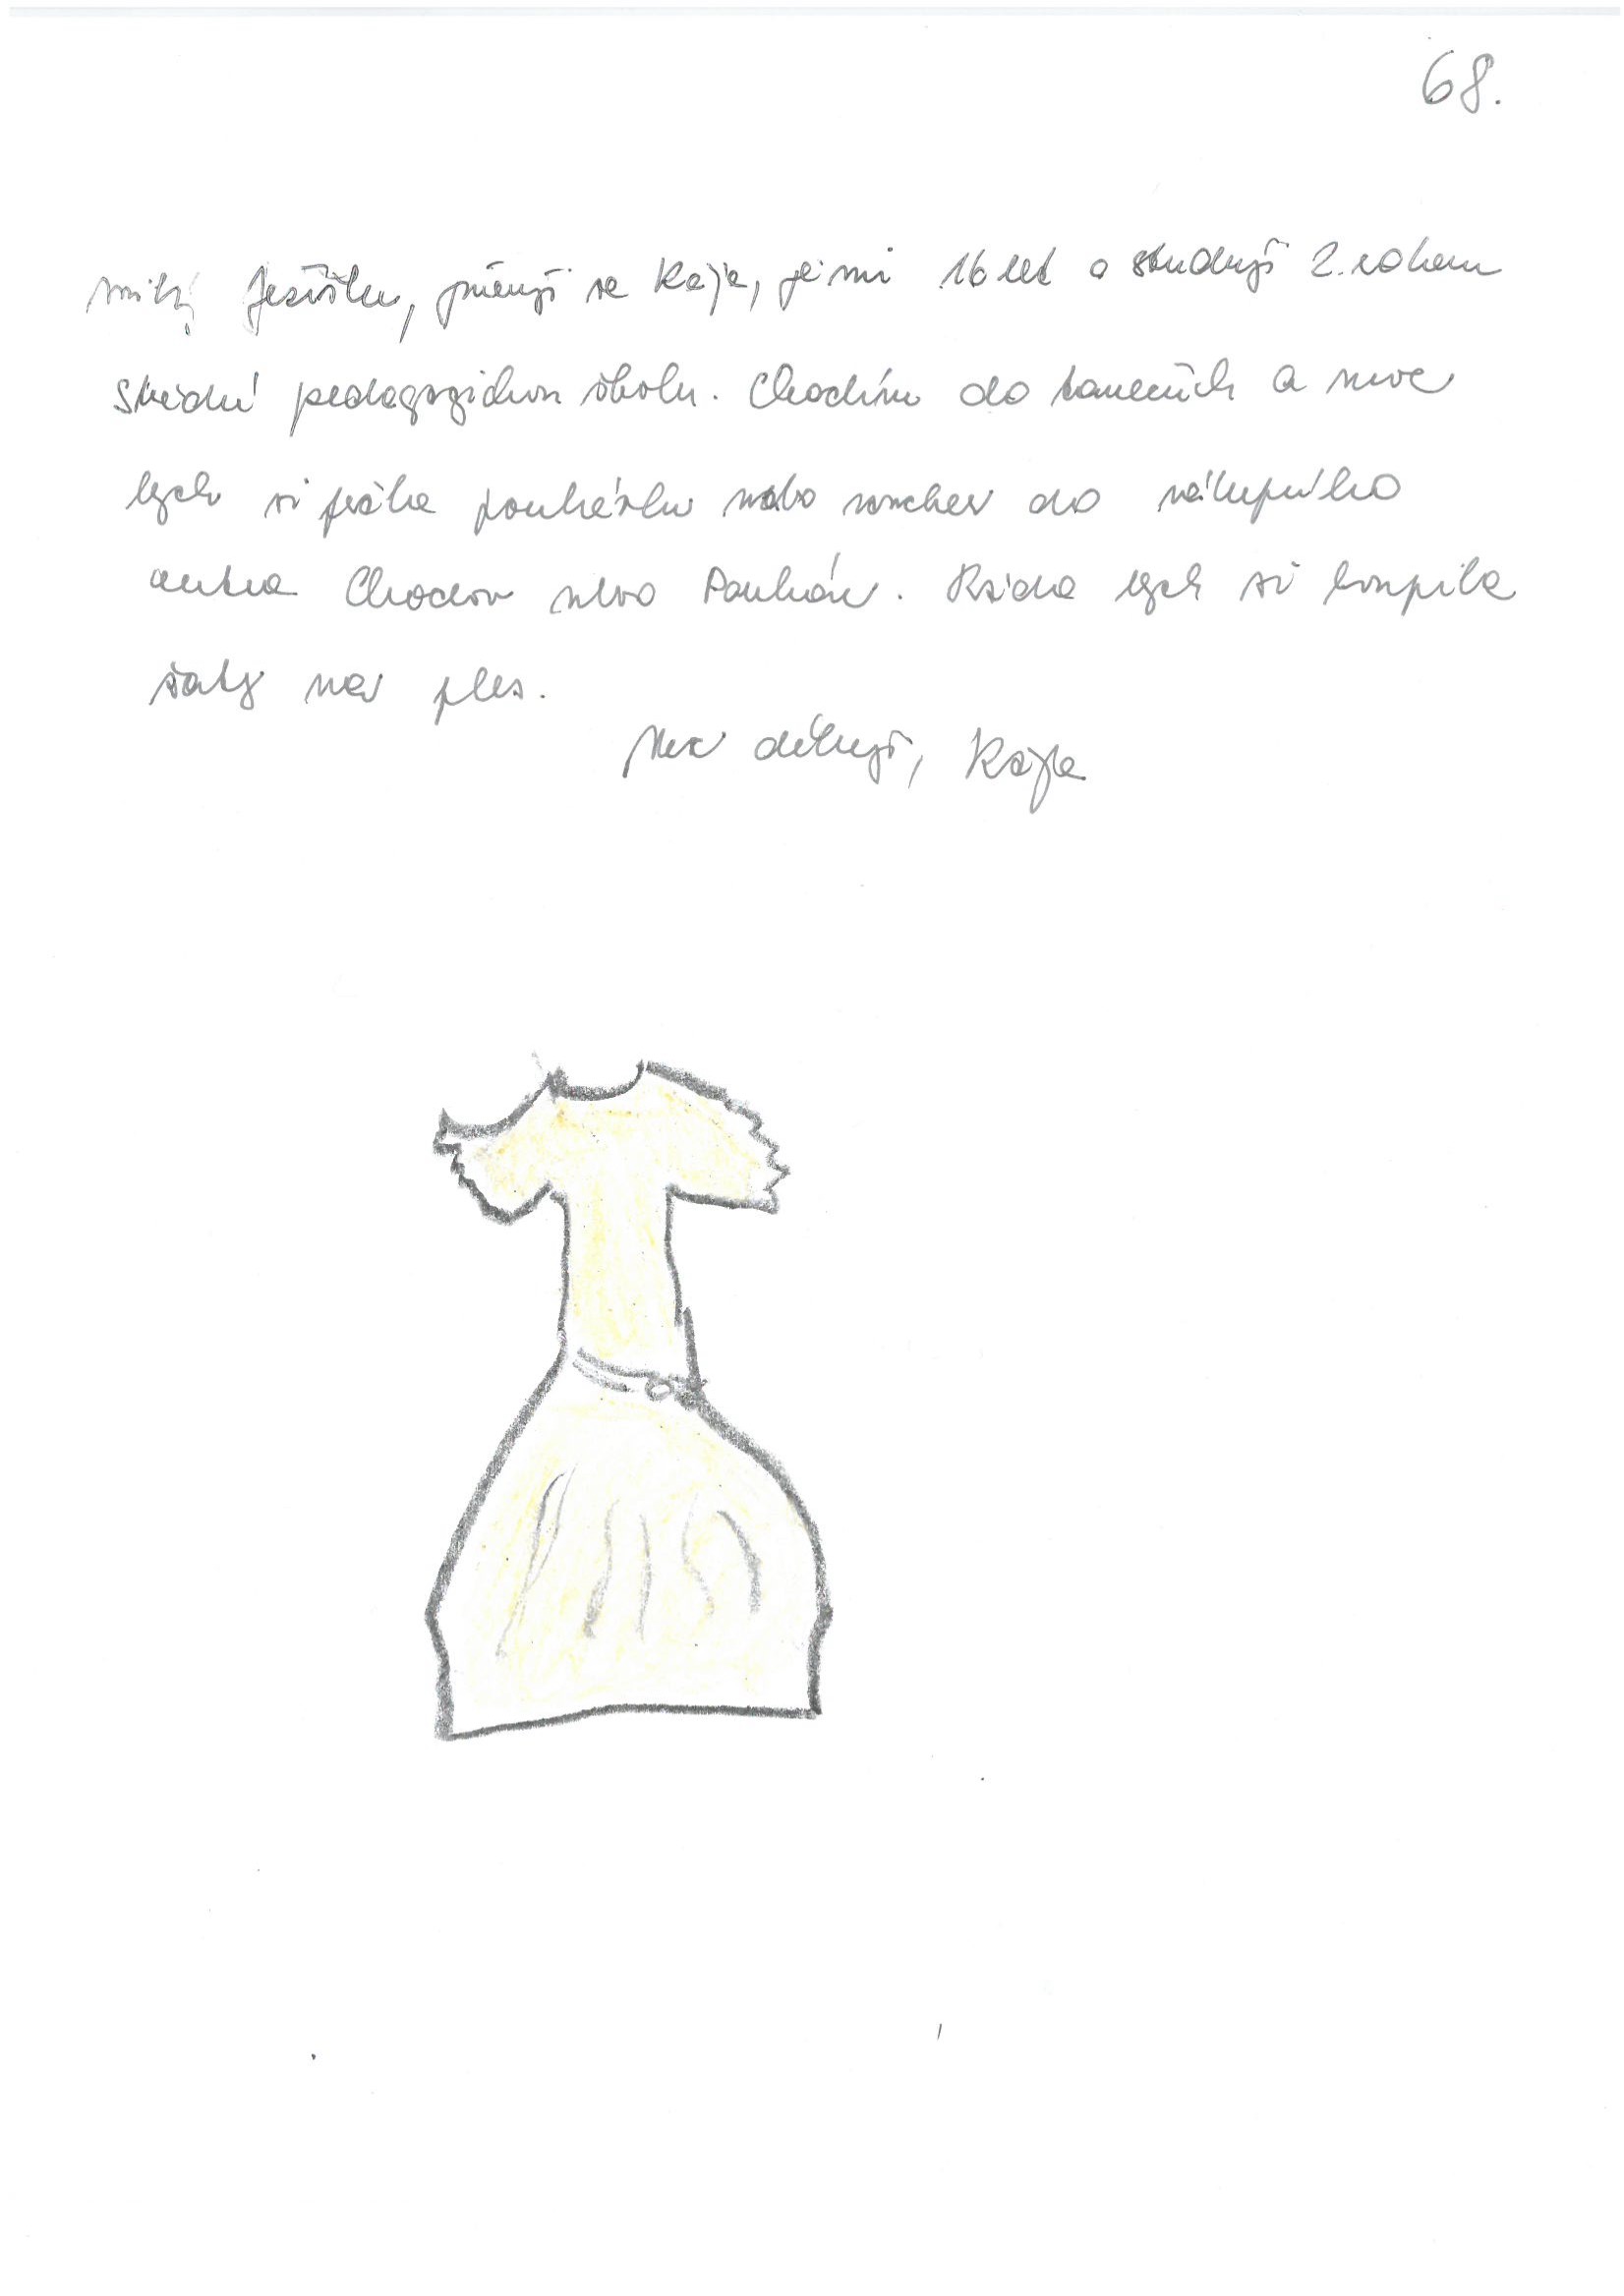 68.
milý Ježíšku, jmenuji se Kája, je mi 16 let a studuji 2. rokem
Střední pedagogickou školu. Chodím do tanečních a moc
bych si přála poukázku nebo voucher do nákupního
centra Chodov nebo Pankrác. Ráda bych si koupila
šaty na ples.
Moc děkuji, Kája